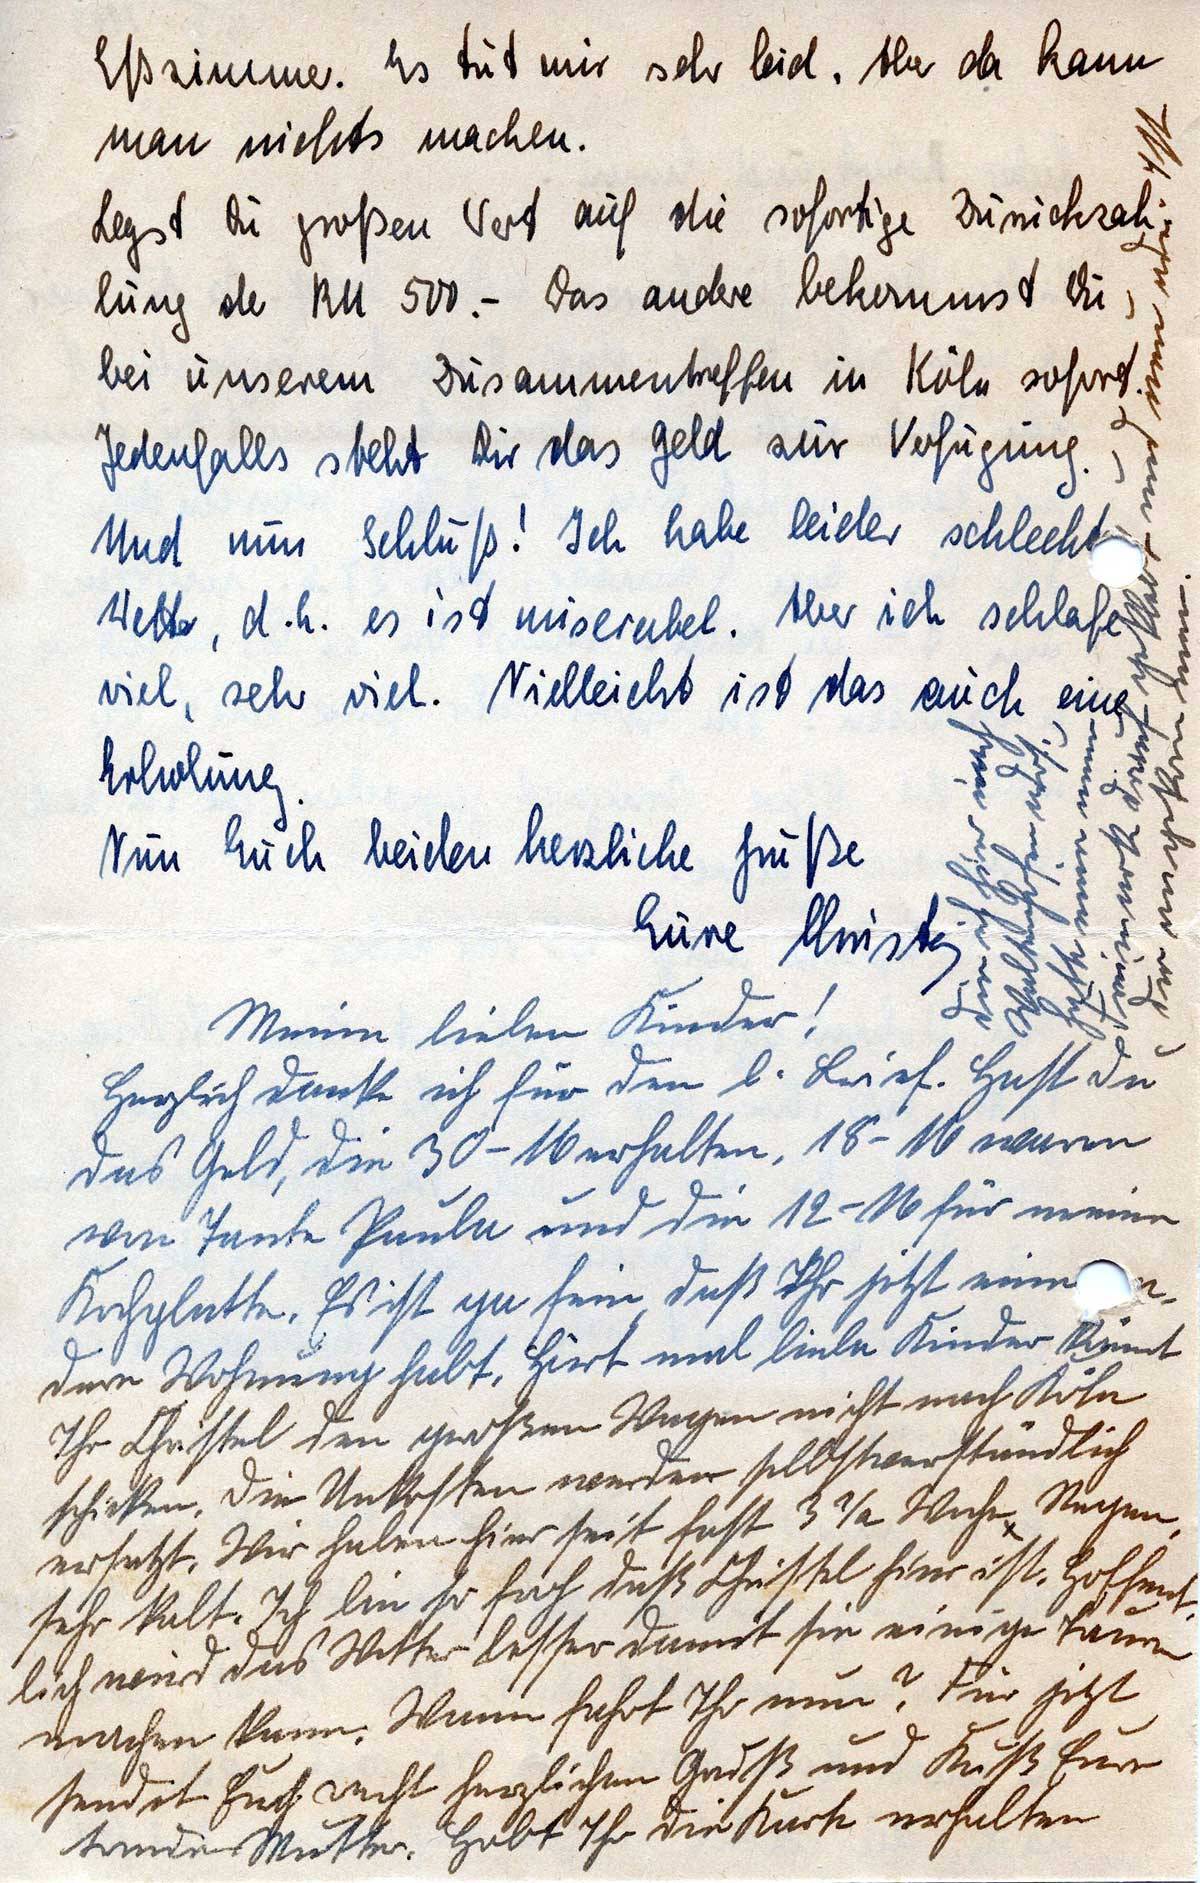 Eßzimmer. Es tut mir sehr leid. Aber da kann
man nichts machen.
Legst Du großen Wert auf die sofortige Zurückzah-
lung der RM 500.- Das andere bekommst Du
bei unserem Zusammentreffen in Köln sofort.
Jedenfalls steht Dir das Geld zur Verfügung.
Und nun Schluß! Ich habe leider schlecht
Wetter, d.h. es ist miserabel. Aber ich schlafe
viel, sehr viel. Vielleicht ist das auch eine
Erholung.
Nun Euch beiden herzliche Grüße
Eure Christel
Meine lieben Kinder!
Herzlich danke ich für den l. Brief. Hast Du
das Geld, die 30-M erhalten, 18-M waren
von Tante Paula und die 12-M für meine
Kochplatte. Es ist ja fein, daß Ihr jetzt eine an-
dere Wohnung habt. Hört mal liebe Kinder könnt
Ihr Christel den großen Wagen nicht nach Köln
schicken. Die Unkosten werden selbstverständlich
ersetzt. Wir haben hier seit fast 3 1/2 Woche Regen,
sehr kalt. Ich bin so froh daß Christel hier ist. Hoffent-
lich wird das Wetter besser damit sie einige Touren
machen kann. Wann fahrt Ihr nun? Für jetzt
sendet Euch recht herzlichen Gruß und Kuß Eure
Mutter. Habt Ihr die Karte erhalten
die ich hier